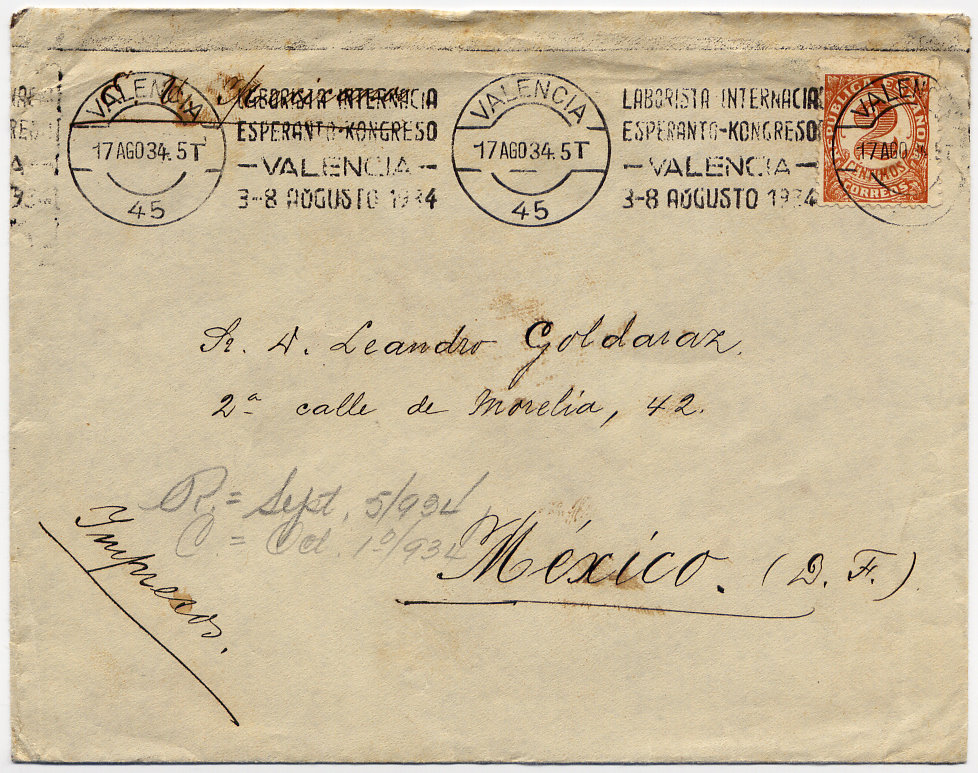 VALENCIA
17 AGO 34. 5T
45
LABORISTA INTERNACIA
ESPERANTO-KONGRESO
—VALENCIA—
3-8 AŬGUSTO 1934
VALENCIA
17 AGO 34. 5T
45
LABORISTA INTERNACIA
ESPERANTO-KONGRESO
—VALENCIA—
3-8 AŬGUSTO 1934
VALEN
17 AGO 5T
2
CÉNTIMOS
CORREOS
Sr. D. Leandro Goldaraz.
2ª calle de Morelia, 42.
R. = Sept. 5/934
C. = Oct. 1º/934
México. (D. F.)
Impresos.